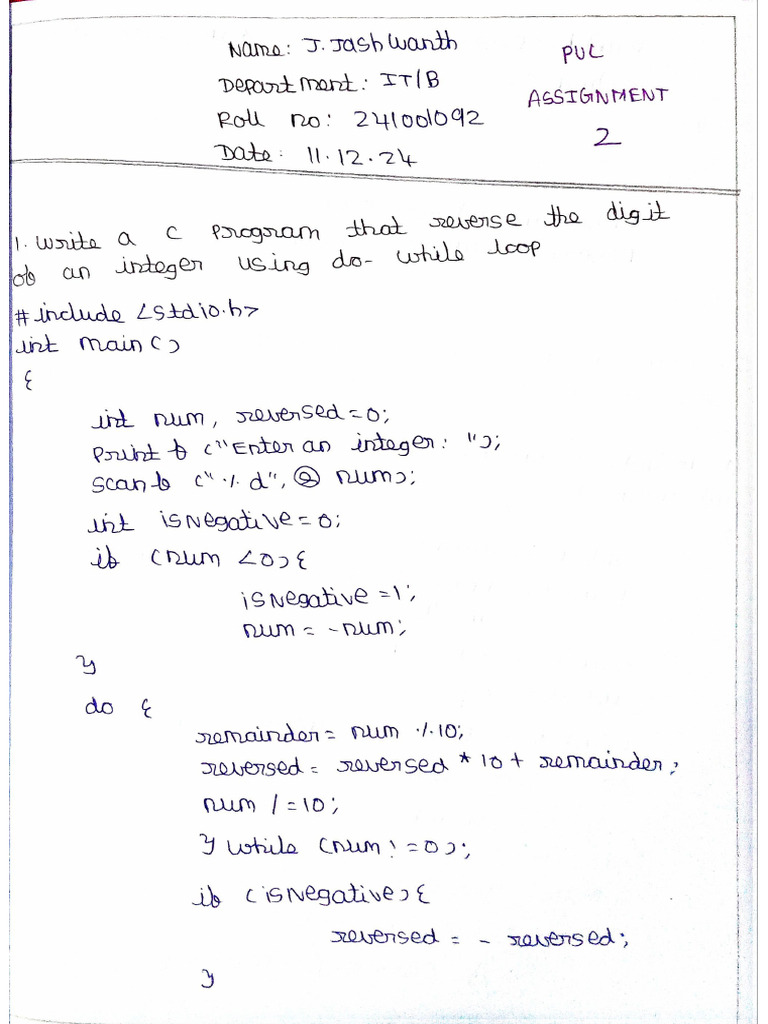 Name: J. Jash Wanth
Department: IT/B
Roll no: 241001092
Date: 11.12.24
PUC
ASSIGNMENT
2
1. Write a C program that reverse the digit
of an integer using do- while loop
#include <stdio.h>
int main()
{
int num, reversed=0;
printf ("Enter an integer: ");
scanf ("%d", & num);
int isNegative=0;
if (num <0){
isNegative=1;
num = -num;
}
do {
remainder= num %10;
reversed= reversed * 10 + remainder;
num /=10;
} while (num!=0);
if (isNegative){
reversed = - reversed;
}